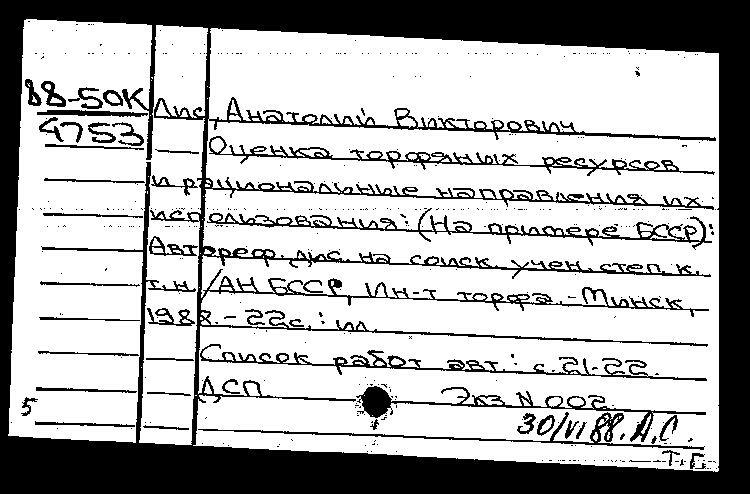 88-50К
4753
Лис, Анатолий Викторович
Оценка торфяных ресурсов
и рациональные направления их
использования: (На примере БССР):
Автореф. дис. на соиск. учен. степ. к.
т.н. / АН БССР, Ин-т торфа. - Минск,
1988. - 22с.: ил.
Список работ авт.: с. 21-22.
ДСП Экз N 002
5
30/VI 88. А.С.
Т.Г.